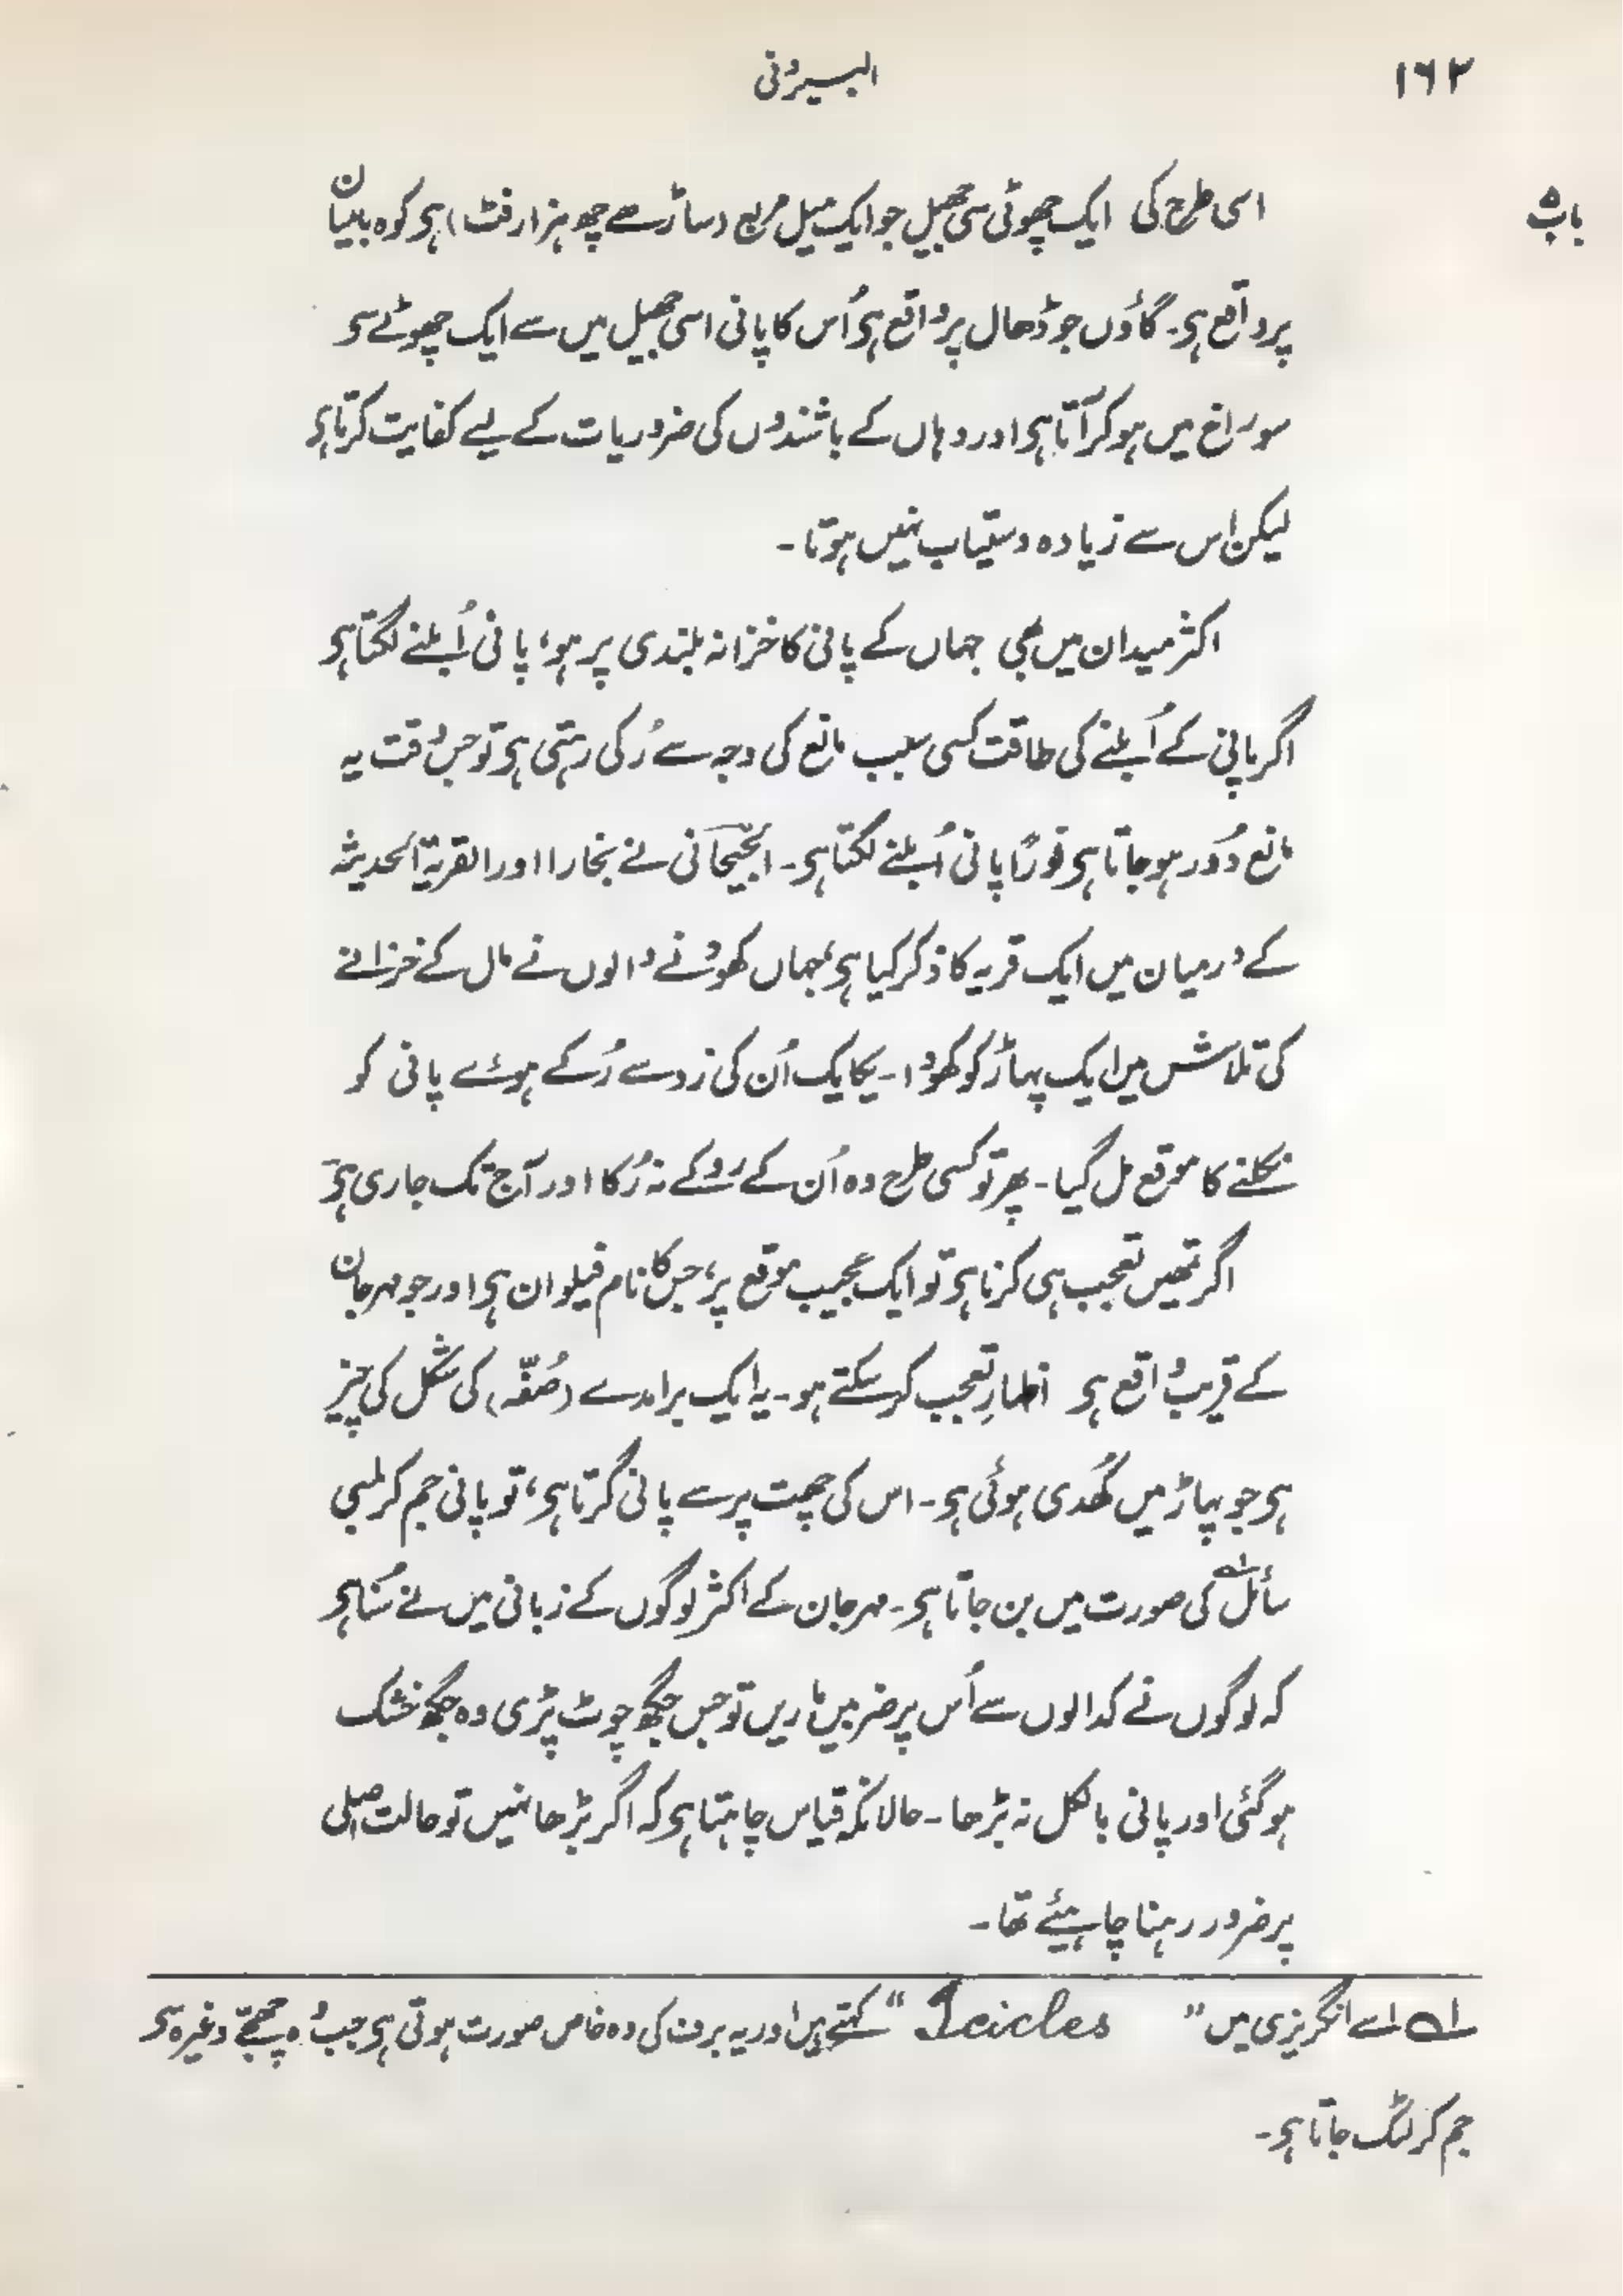 ۱۶۲
البیرونی
باب ۵
اسی طرح کی ایک چھوٹی سی جھیل جو ایک میل مربع (ساڑھے چھ ہزار فٹ) ہی کوہ بامیان
پر واقع ہی۔ گاؤں جو ڈھال پر واقع ہی اُس کا پانی اسی جھیل میں سے ایک چھوٹے سے
سوراخ میں ہو کر آتا ہی اور وہاں کے باشندوں کی ضروریات کے لیے کفایت کرتا ہی
لیکن اس سے زیادہ دستیاب نہیں ہوتا۔
اکثر میدان میں بھی جہاں کے پانی کا خزانہ بلندی پر ہو، پانی اُبلنے لگتا ہی
اگر پانی کے اُبلنے کی طاقت کسی سبب مانع کی وجہ سے رُکی رہتی ہی تو جس وقت یہ
مانع دُور ہو جاتا ہی فوراً پانی اُبلنے لگتا ہی۔ الجیہانی نے بخارا اور القریۃ الحدیثہ
کے درمیان میں ایک قریہ کا ذکر کیا ہی، جہاں کھودنے والوں نے مال کے خزانے
کی تلاش میں ایک پہاڑ کو کھودا۔ یکایک اُن کی زد سے رُکے ہوئے پانی کو
نکلنے کا موقع مل گیا۔ پھر تو کسی طرح وہ اُن کے روکے نہ رُکا اور آج تک جاری ہی
اگر تمھیں تعجب ہی کرنا ہی تو ایک عجیب موقع پر، جس کا نام فیلوان ہی اور جو مہرجان
کے قریب واقع ہی اظہارِ تعجب کر سکتے ہو۔ یہ ایک برامدے (صُفّہ) کی شکل کی چیز
ہی جو پہاڑ میں کھُدی ہوئی ہی۔ اس کی چھت پر سے پانی گرتا ہی، تو پانی جم کر لمبی
سائل لہ کی صورت میں بن جاتا ہی۔ مہرجان کے اکثر لوگوں کے زبانی میں نے سُنا ہی
کہ لوگوں نے کدالوں سے اُس پر ضربیں ماریں تو جس جگہ چوٹ پڑی وہ جگہ خشک
ہو گئی اور پانی بالکل نہ بڑھا۔ حالانکہ قیاس چاہتا ہی کہ اگر بڑھا نہیں تو حالت اصلی
پر ضرور رہنا چاہیئے تھا۔
لہ اسے انگریزی میں "Icicles" کہتے ہیں اور یہ برف کی وہ خاص صورت ہوتی ہی جب وہ چھجّے وغیرہ سے
جم کر لٹک جاتا ہی۔